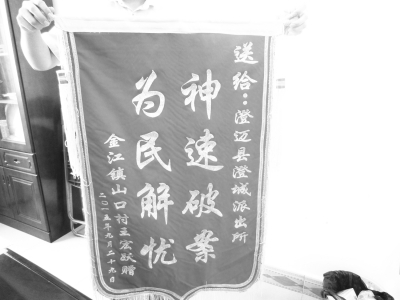 送给：澄迈县澄城派出所
神速破案
为民解忧
金江镇山口村王宏献赠
二〇一五年九月二十九日